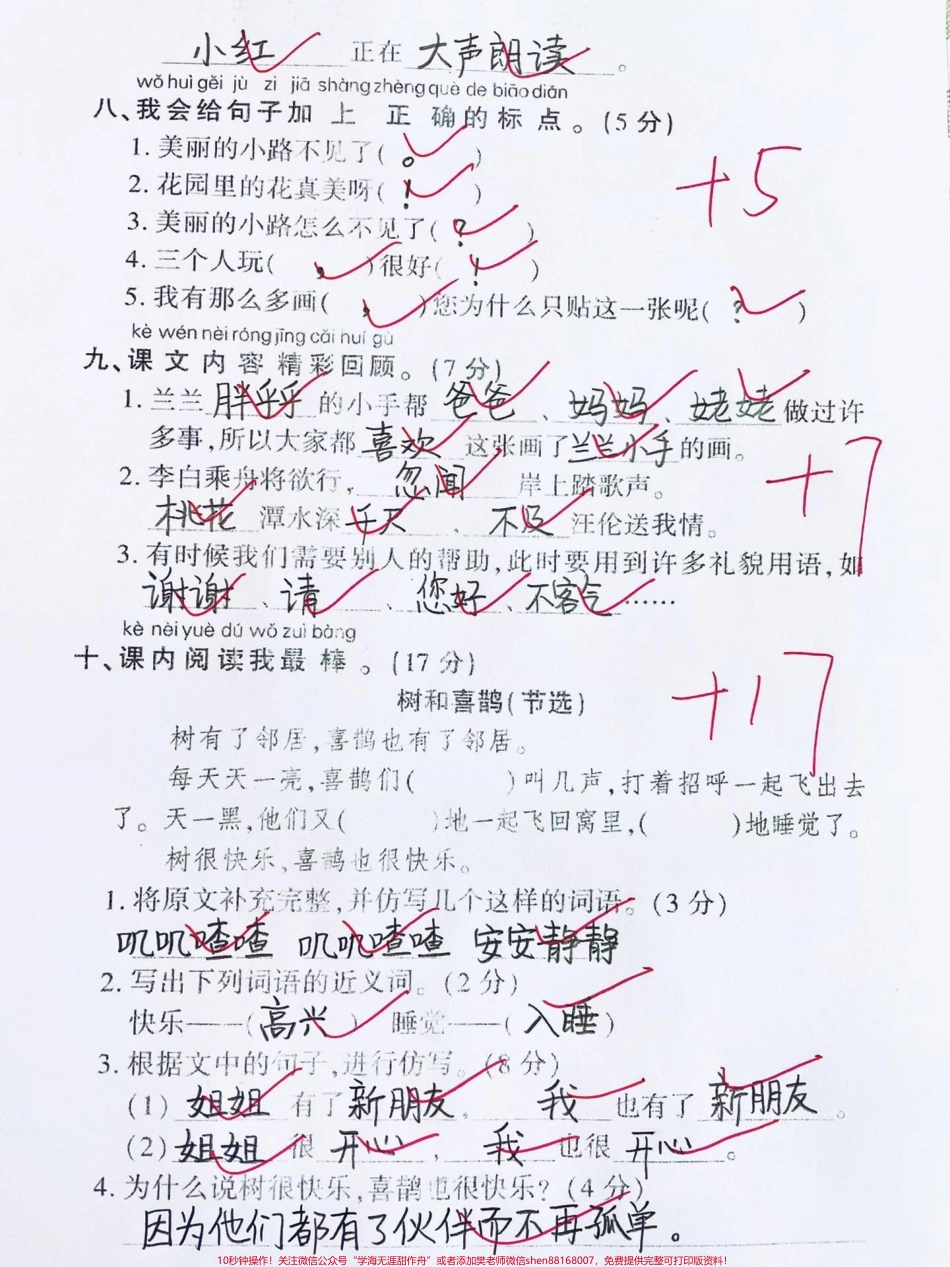 小红 正在 大声朗读 。
wǒ huì gěi jù zi jiā shàng zhèng què de biāo diǎn
八、我会给句子加 上 正 确的标 点。(5分)
1. 美丽的小路不见了( 。 )
+5
2. 花园里的花真美呀( ! )
3. 美丽的小路怎么不见了( ? )
4. 三个人玩( , )很好( ! )
5. 我有那么多画( , )您为什么只贴这一张呢( ? )
kè wén nèi róng jīng cǎi huí gù
九、课文内容精彩回顾。(7分)
1. 兰兰 胖乎乎 的小手帮 爸爸 、妈妈、姥姥 做过许
多事,所以大家都 喜欢 这张画了兰兰小手的画。
+7
2. 李白乘舟将欲行, 忽闻 岸上踏歌声。
桃花 潭水深 千尺 , 不及 汪伦送我情。
3. 有时候我们需要别人的帮助,此时要用到许多礼貌用语,如
谢谢、请、您好、不客气……
kè nèi yuè dú wǒ zuì bàng
十、课内阅读我最棒。(17分)
+17
树和喜鹊(节选)
树有了邻居,喜鹊也有了邻居。
每天天一亮,喜鹊们( )叫几声,打着招呼一起飞出去
了。天一黑,他们又( )地一起飞回窝里,( )地睡觉了。
树很快乐,喜鹊也很快乐。
1. 将原文补充完整,并仿写几个这样的词语。(3分)
叽叽喳喳 叽叽喳喳 安安静静
2. 写出下列词语的近义词。(2分)
快乐——(高兴) 睡觉——(入睡)
3. 根据文中的句子,进行仿写。(8分)
(1) 姐姐 有了 新朋友, 我 也有了 新朋友 。
(2) 姐姐 很 开心 , 我 也很 开心 。
4. 为什么说树很快乐,喜鹊也很快乐?(4分)
因为他们都有了伙伴而不再孤单。
10秒钟操作!关注微信公众号“学海无涯甜作舟”或者添加樊老师微信shen88168007,免费提供完整可打印版资料!